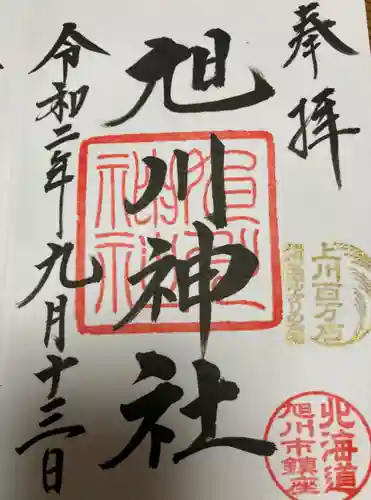 奉拝
旭川神社
令和二年九月十三日
上川百万石
北海道
旭川市鎮座